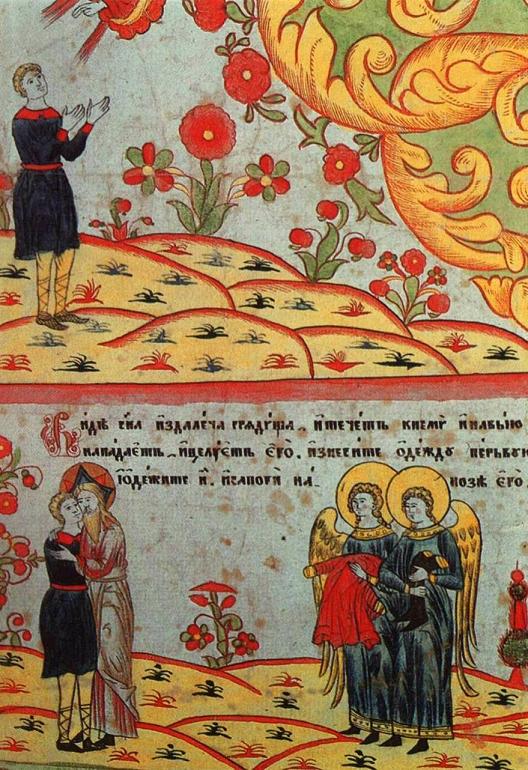 Видѣ сна издалеча грядуща, и течетъ к нему и на выю
нападаетъ, и целуетъ его. изнесите одежду первую
и одежите и. и сапоги на нозѣ его.